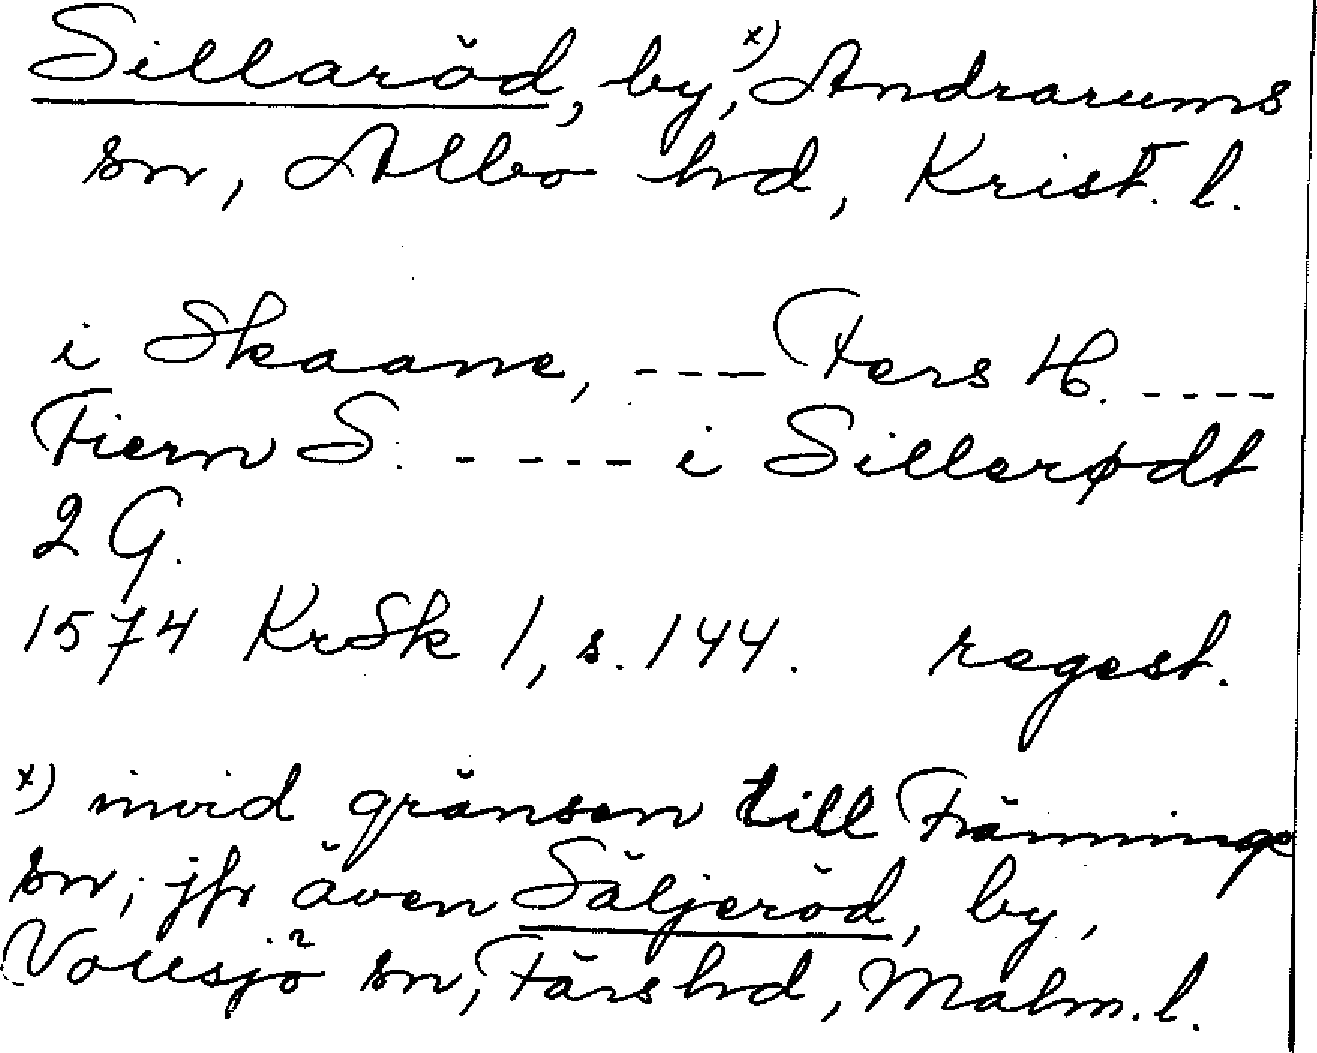 Sillaröd, by,ˣ⁾ Andrarums
sn, Albo hd, Krist. l.
i Skaane, --- Fers H. ----
Fiern S. ---- i Sillerødt
2 G.
1574 KrSk 1, s. 144. regest.
ˣ⁾ invid gränsen till Fränninge
sn; jfr även Säljeröd, by,
Vollsjö sn, Färs hd, Malm. l.